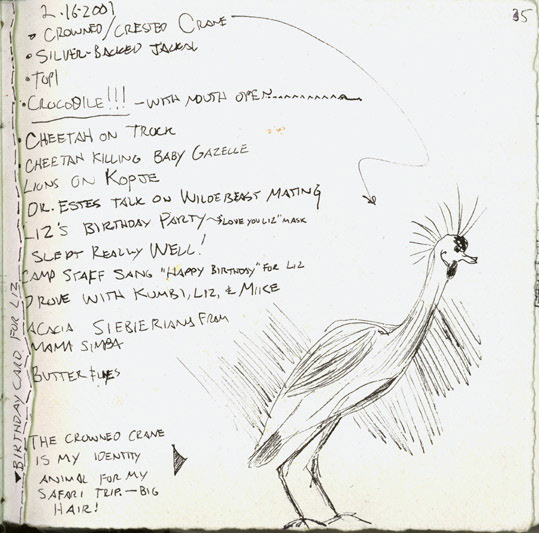 2.16.2001
35
• CROWNED/CRESTED CRANE
• SILVER-BACKED JACKAL
• TOPI
• CROCODILE!!! - WITH MOUTH OPEN
• CHEETAH ON TRUCK
CHEETAH KILLING BABY GAZELLE
LIONS ON KOPJE
DR. ESTES TALK ON WILDEBEAST MATING
LIZ'S BIRTHDAY PARTY ~ "I LOVE YOU LIZ" MASK
SLEPT REALLY WELL!
CAMP STAFF SANG "HAPPY BIRTHDAY" FOR LIZ
DROVE WITH KUMBI, LIZ, & MIKE
ACACIA SIEBIERIANS FROM
MAMA SIMBA
BUTTERFLIES
BIRTHDAY CARD FOR LIZ
THE CROWNED CRANE
IS MY IDENTITY
ANIMAL FOR MY
SAFARI TRIP. - BIG
HAIR!